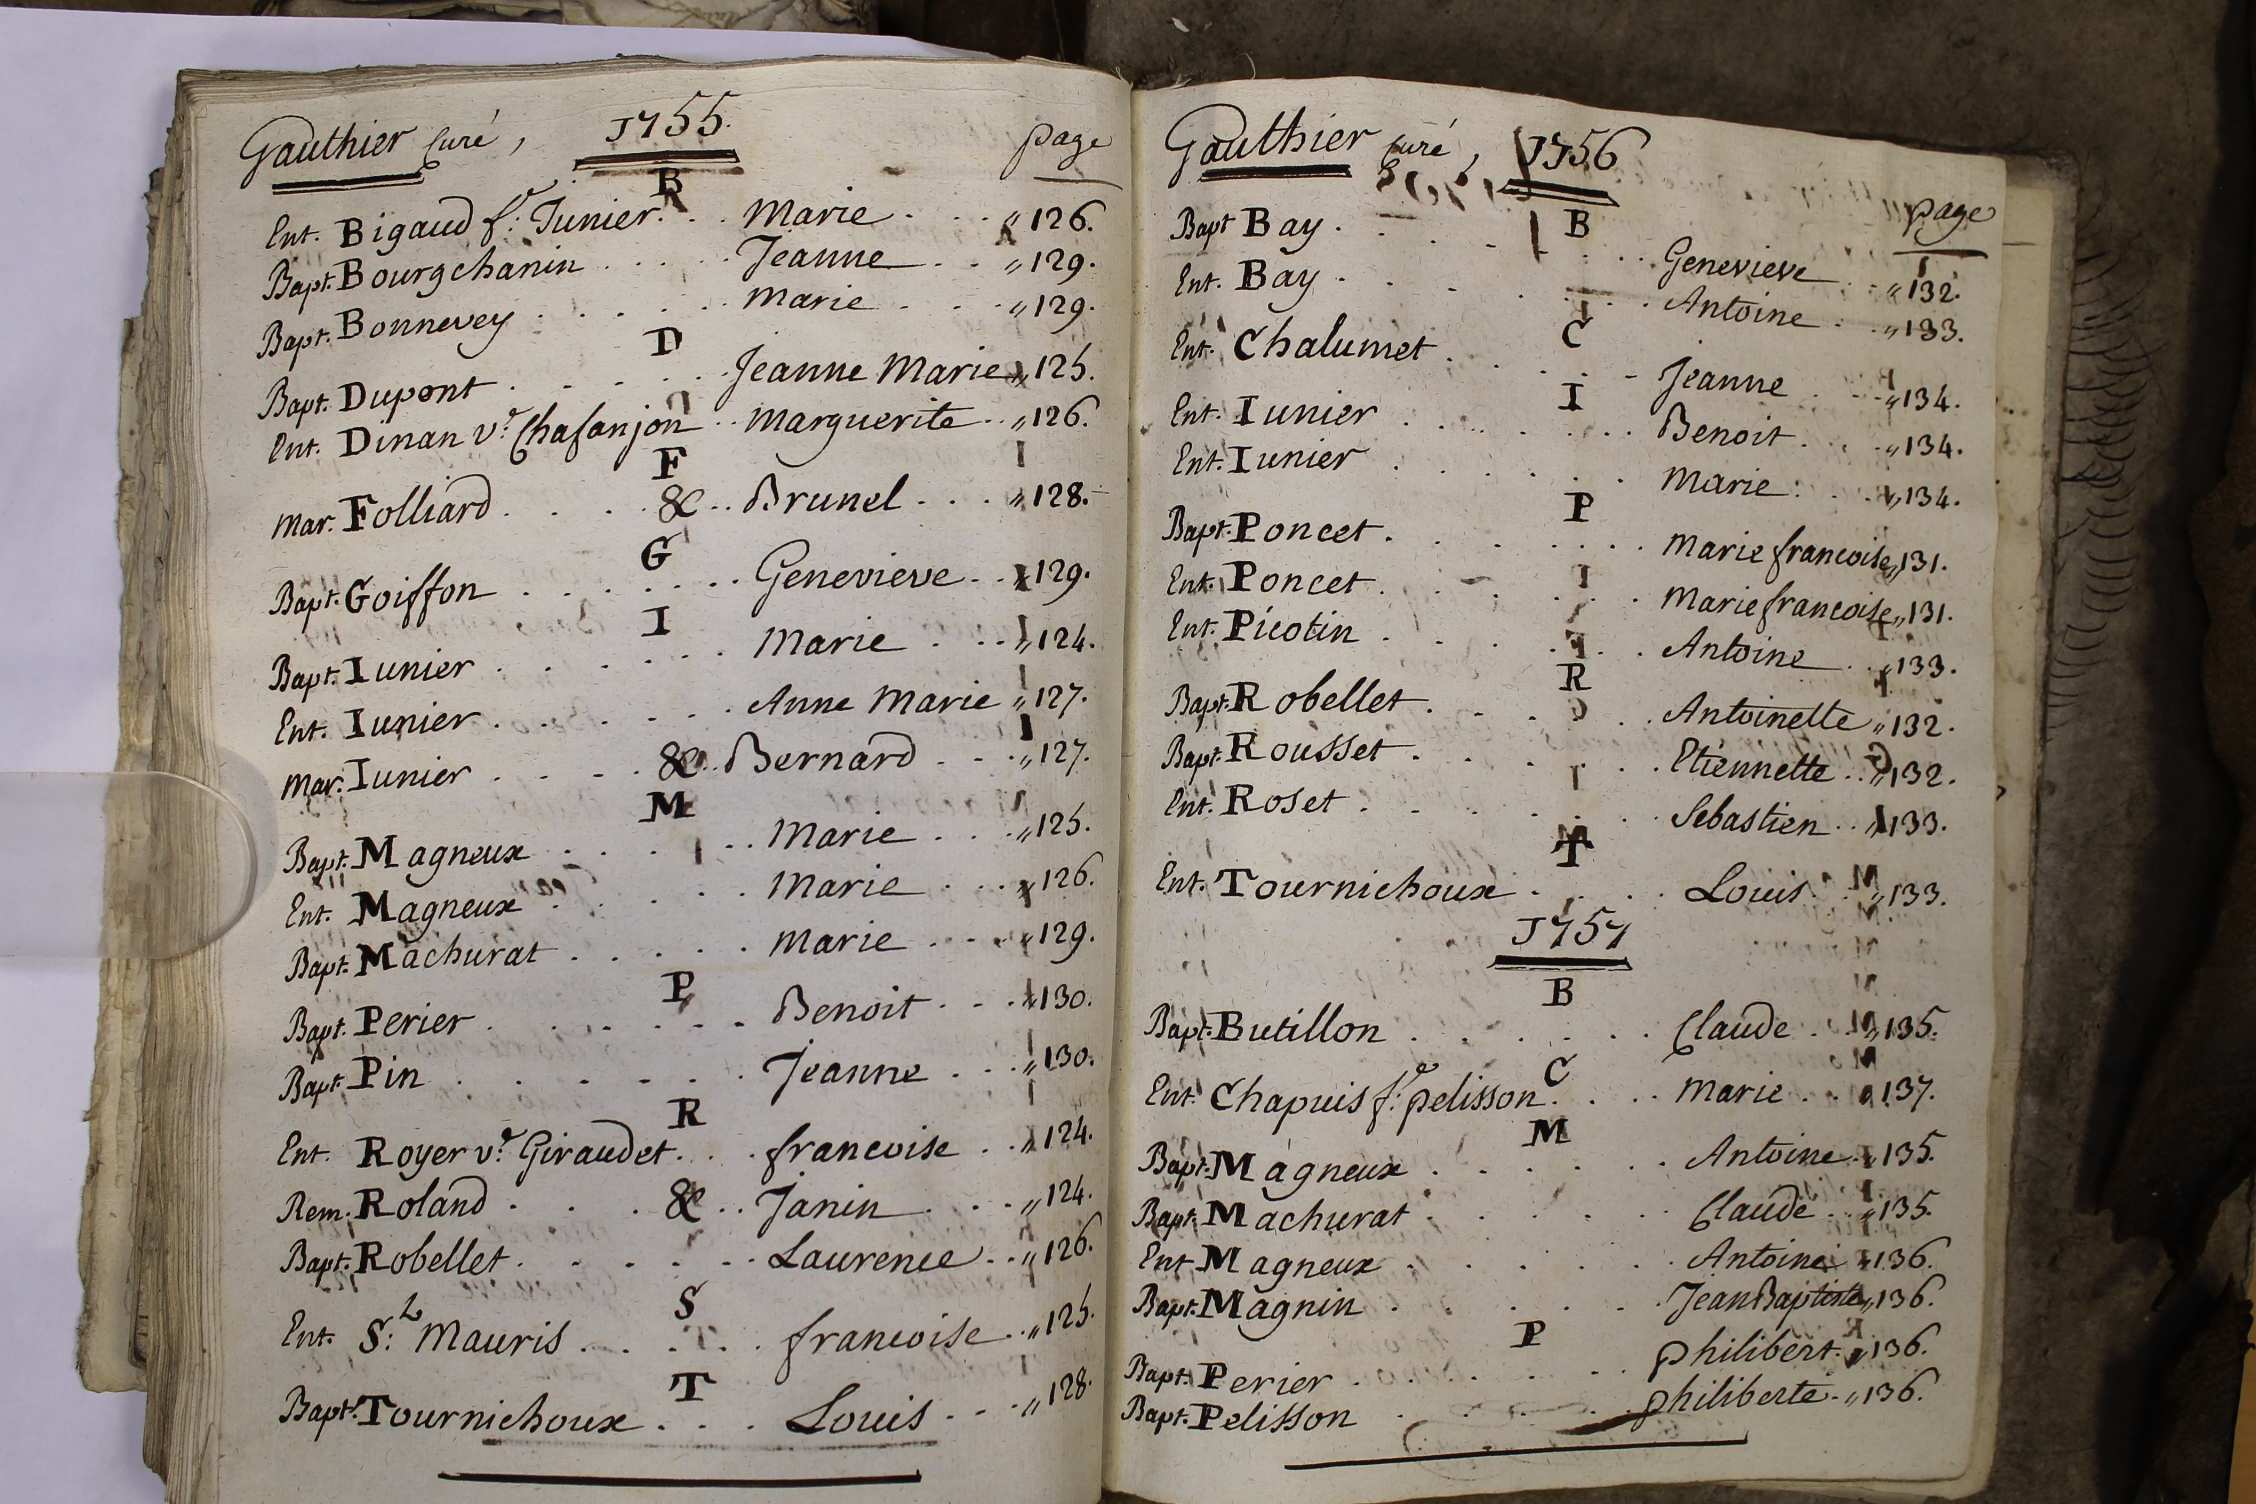 Gauthier Curé, 1755. page
B
Ent. Bigaud f.e Junier. . . Marie . . . „ 126.
Bapt. Bourgchanin . . . . . Jeanne . . „ 129.
Bapt. Bonnevey . . . . . Marie . . . „ 129.
D
Bapt. Dupont . . . . . Jeanne Marie „ 125.
Ent. Dinan v.e Chafanjon . . Marguerite . . „ 126.
F
Mar. Folliard . . . . & . . Brunel . . . „ 128.
G
Bapt. Goiffon . . . . . . Genevieve . . „ 129.
I
Bapt. Iunier . . . . . . Marie . . . „ 124.
Ent. Iunier . . . . . . Anne Marie „ 127.
Mar. Iunier . . . . & . . Bernard . . . „ 127.
M
Bapt. Magneux . . . . . Marie . . . „ 125.
Ent. Magneux . . . . . Marie . . . „ 126.
Bapt. Machurat . . . . . Marie . . . „ 129.
P
Bapt. Perier . . . . . . Benoit . . . „ 130.
Bapt. Pin . . . . . . Jeanne . . . „ 130.
R
Ent. Royer v.e Giraudet . . . francoise . . „ 124.
Rem. Roland . . . . & . . Janin . . . „ 124.
Bapt. Robellet . . . . . . Laurence . . „ 126.
S
Ent. S.t Mauris . . . . . francoise . . „ 125.
T
Bapt. Tournichoux . . . Louis . . . „ 128.
Gauthier Curé, 1756
page
B
Bapt Bay . . . . . . Genevieve . . „ 132.
Ent. Bay . . . . . . Antoine . . „ 133.
C
Ent. Chalumet . . . . . Jeanne . . . „ 134.
I
Ent. Iunier . . . . . . Benoit . . . „ 134.
Ent. Iunier . . . . . . Marie . . . „ 134.
P
Bapt. Poncet . . . . . . Marie francoise „ 131.
Ent. Poncet . . . . . . Marie francoise „ 131.
Ent. Picotin . . . . . . Antoine . . „ 133.
R
Bapt. Robellet . . . . . Antoinette „ 132.
Bapt. Rousset . . . . . . Etiennette . . „ 132.
Ent. Roset . . . . . . Sebastien . . „ 133.
T
Ent. Tournichoux . . . . Louis . . „ 133.
1757
B
Bapt. Butillon . . . . . Claude . . „ 135.
C
Ent. Chapuis f.e pelisson . . . Marie . . „ 137.
M
Bapt. Magneux . . . . . Antoine . „ 135.
Bapt. Machurat . . . . . Claude . . „ 135.
Ent. Magneux . . . . . . Antoine . „ 136.
Bapt. Magnin . . . . . . Jean Baptiste „ 136.
P
Bapt. Perier . . . . . . philibert . „ 136.
Bapt. Pelisson . . . . . philiberte . „ 136.